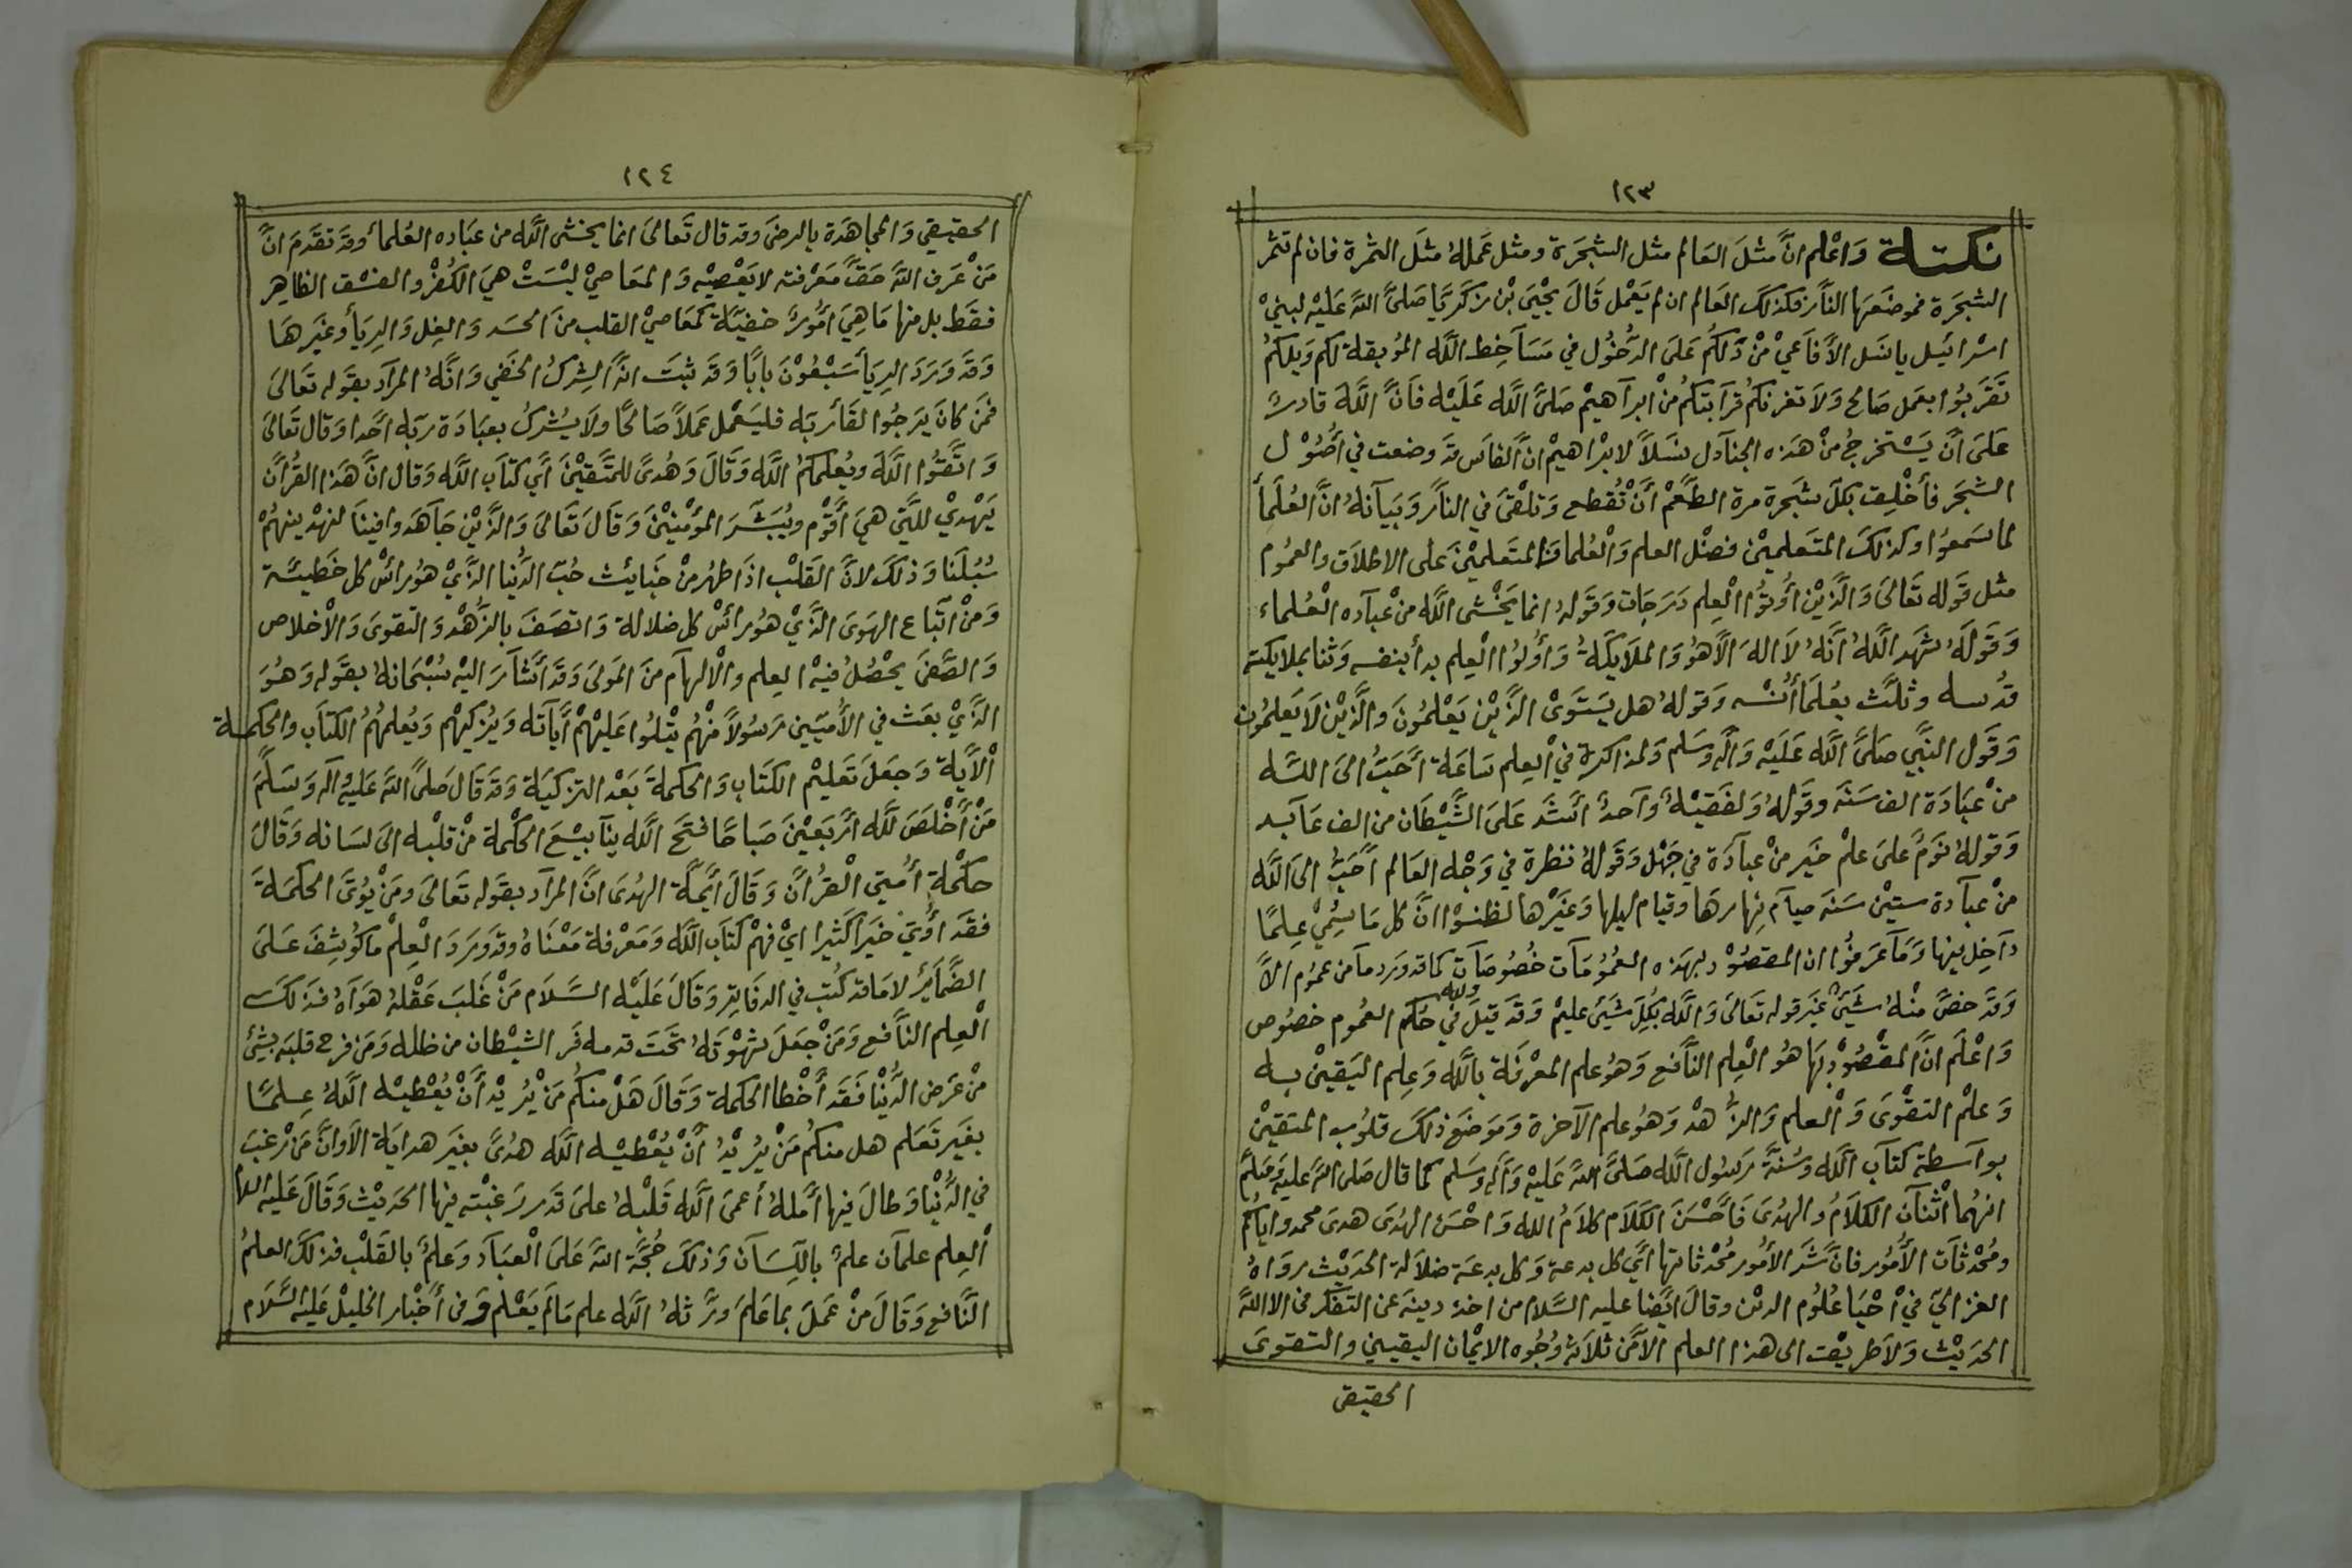 ١٢٣
نكتة وَاعْلم انَّ مثلَ العَالم مثل الشجَرَة ومثل عَمَلهُ مثَل الثمرة فان لم تثمر
الشجَرَة فموضعَها النَّار فكذلكَ العَالم ان لم يَعْمل قَالَ يحْيَى بْن زكرَيَّا صَلىَّ اللهَ عَليْه لبنيْ
اسْرائيل يانسَل الأَفَاعيْ منْ دَلكُم عَلىَ الدُّخُول في مَسَآخِط اللَّه المُوبقة لكم وَيلكمُ
تَقَربُوا بعمَل صَالح وَلاَ تغرنكُم قرَآبتكُم منْ ابرآهيْم صَلىَّ اللَّه عَلَيْه فَانَّ اللَّهَ قادرٌ
عَلىَ أنَّ يَسْتخرجُ منْ هَذه الجنآدل نسَلاً لابْراهيمْ انَّ الفاسَ قدَ وضعت في أصُوْل
الشجَر فأخْلِق بكلّ شجَرة مرة الطَّعْم أنَّ تُقطع وَتلْقىَ في النَّار وَبَيَآنهُ انَّ العُلَمأ
لما سَمعُوا وكذلكَ المتَعلميْن فضْل العلم وَالْعُلما وَالمتَعلميْنَ على الاطلاَق والعمُوم
مثل قَوله تَعَالىَ وَالَّذيْن أوتُوا الْعِلم دَرَجَات وَقَولهُ انما يَخْشى اللَّه منْ عبآده الْعُلماء
وَقَولَهُ شهَد اللَّهُ انَّهُ لاَ الهَ الاَّ هُوَ وَالملاَيكَةُ وَأولُوا الْعِلم بدأ بنفسه وَثنا بملايكة
قدُسه وثلَّث بعُلمَأ أنْسه وَقولهُ هل يَستَوَى الَّذيْن يَعْلمُونَ والَّذيْن لاَ يَعلمُون
وَقَول النبَّي صَلىَّ اللَّه عَلَيْه وَآله وسَلم وَلمذاكرة في الْعِلم سَاعَة أحَبُّ الىَ اللَّه
منْ عبَادَة الف سَنَة وقَولهُ وَلفقيْهٌ وَآحدٌ أشَد عَلىَ الشَّيْطَان من الف عَآبد
وَقولهُ نوَمٌ علىَ علمْ خيَر منْ عبآدَة في جَهْل وَقَولهُ نظرة في وَجْه العَالم أحَبُّ الىَ اللَّه
منْ عبآدة ستيْن سَنَة صيآم نهارهَا وقيام ليلها وَغيَرْها لظنوْا انَّ كل مَا يسُمِيْ عِلمًا
دآخِل فيها وَمَآ عَرفوُا ان المقصُوْد بهَذه العمُومَات خُصُوصَآت كما قد ورَد مآ من عمُوم الاَّ
وَقدَ خصَّ منْهُ شيَئ غيَر قوله تعَالىَ وَاللَّه بكُلِ شيَئ عليْم وَقدَ قيَلَ في حُكم العمُوم خصُوص
وَاعْلَم انَّ المقْصُوْد بهَا هُو الْعِلم النَّافع وَهُو علم المعْرفَة بالله وَعِلم اليَقيْن به
وَعلمْ التقْوَى وَالْعلم وَالزُّهدْ وَهُو علم الآخرة وَمَوضَع ذلكَ قلوُب المتقيْن
بوآسطة كتآب اللَّه وَسُنَّة رَسوُل اللَّه صَلىَّ اللهَ عَليْه وَآله وسَلم كما قال صَلى اللهَ عليه وَسَلمَّ
انهُما اثْنآن الكلاَمُ والهدُىَ فَأحْسَنَ الكَلاَم كلاَمُ اللهِ وَاحْسَن الهدُى هدىَ محمد واياكُم
ومُحْدثَات الأمُور فانَّ شَر الأمُور مُحْدثاتها أيَّ كل بدعة وَكل بدعَة ضلاَلة الحَديْث روَاهُ
الغزالي فيْ احْيَا عُلوُم الديْن وقالَ ايَضًا عليه السَّلام من اخذ دينهَ عن التفَكر في الا اللهَّ
الحَديْث وَلاَ طريْقت الى هذا العلم الاَّ منْ ثلاَثة وُجُوه الايْمان اليقيني والتقوىَ
الحقيقى
١٢٤
الحقيقي وَالمجَاهَدة بالرضىَ وقد قال تَعالىَ انما يخشى اللَّه من عبَاده العُلمأ وقَد تقَدمَ انَّ
مَنْ عَرَف اللهَّ حَقَّ مَعَرْفته لا يَعْصيْه وَالمعَاصيْ ليْسَتْ هيَ الكُفْر والفسْق الظاهِر
فقَط بل منها مَا هِيَ امُورٌ خفيَّة كمعَاصيْ القلب منَ الحسَد وَالغِل وَالريَأ وغيَرهَا
وَقدَ وَردَ الريَأ سَبْعُوْنَ بابًا وَقدَ ثبتَ انَّ الشِركُ الخفي وَانَّهُ المرآد بقَوله تعَالىَ
فمَن كانَ يَرجُوا لقَأ ربّه فليَعْمل عَملاً صَالحًا ولاَ يُشركُ بعبَادَة ربّه احَدا وَقال تَعَالىَ
وَاتَّقوُا اللَّهَ ويُعلمَكمُ اللَّه وَقَالَ وَهُدىً للمتَّقيْنَ أي كتَاَب اللَّه وَقال انَّ هَذا القُرأن
يَهدْيْ للَّتي هيَ أقَوْم ويُبَشّرَ المؤَمْنيْنَ وَقَالَ تَعَالىَ وَالذَّيْن جَآهَدوا فينَا لنهدْينهمُْ
سُبُلَنا وَذلكَ لانَّ القَلْب اذَا طهرُ منْ خبَايئث حُبّ الدُّنيا الذَّيْ هوُ رائسْ كل خَطيئَة
وَمنْ اتبَّاع الهَوىَ الذَّيْ هوُ رائسْ كل ضلالة وَاتصَفَ بالزُّهْد وَالتقوىَ وَالأخْلاص
وَالصَّفىَ يحْصُلُ فيْه العِلم والألهآم منَ المَولىَ وَقدَ أشآرَ اليْه سُبْحَانهُ بقَوله وَهُوَ
الذَّيْ بعَث في الأُميّين رَسوُلاً منْهُم يتْلوُا عَليْهمْ أيَاته وَيُزكيْهم وَيُعلمُهُم الكتَاب والحكمة
الأيَة وَجعَلَ تَعَليْم الكتَاب وَالحكمةَ بَعْد التزكيَة وَقدَ قَال صَلىَّ اللهَ عَليْه وآله وَسَلَّمَ
مَنْ أخْلَصَ للَّه أربَعَيْنَ صَباحًا فتَح اللَّه ينآبيْعَ الحكْمة منْ قلبْه الىَ لسَانه وَقَالَ
حكْمة أُمتي الْقرُأنَ وَقَالَ أيمَّة الهدُىَ انَّ المرآد بقَوله تعَالىَ ومَنْ يُوتَى الحكمَةَ
فقَدَ أوُتيَ خيَرًا كثيَرا ايْ فهَمْ كتَاب اللَّه وَمَعْرفة مَعْنَاهُ وقدَ وَرَدَ الْعِلْم ما كُوشِفَ عَلىَ
الضَّمايَرْ لا مَا قد كُتبَ في الدفَاتِر وَقَالَ عَليْه السَّلاَم مَنْ غَلبَ عَقْلهُ هَوَآهُ فذَلكَ
الْعِلم النَّافع وَمَنْ جَعَلَ شهْوَتهُ تحَت قدمه فَر الشيْطان من ظله وَمَن فرح قلبَه بشئ
منْ عَرَض الدُّنْيا فَقَد أخْطا الحكمة وَقَالَ هَلْ منكُم مَنْ يُريْد أنْ يُعْطيْه اللَّهُ عِلمًا
بغيَر تَعَلم هل منكُم مَنْ يُريْدُ أنْ يُعْطيْه اللَّه هدُىً بغيَر هدايَة الاَ وانَّ مَنْ رغبَ
في الدُّنيْا وَطالَ فيها أمَلهُ أعمىَ اللَّه قَلبْهُ علىَ قَدر رَغبْته فيها الحَديْث وَقَالَ عَليْه
الْعِلم علمآن علمٌ باللّسَآن وَذلكَ حُجَّة اللهَ عَلىَ الْعبَآد وَعلمٌ بالقَلْب فذلكَ العلمُ
النَّافع وَقَالَ منْ عَملَ بمَا عَلمَ ورَّثهُ اللَّه علم مَا لَم يَعْلم وَفى أخْبار الخليلْ عَليْه السَّلاَم